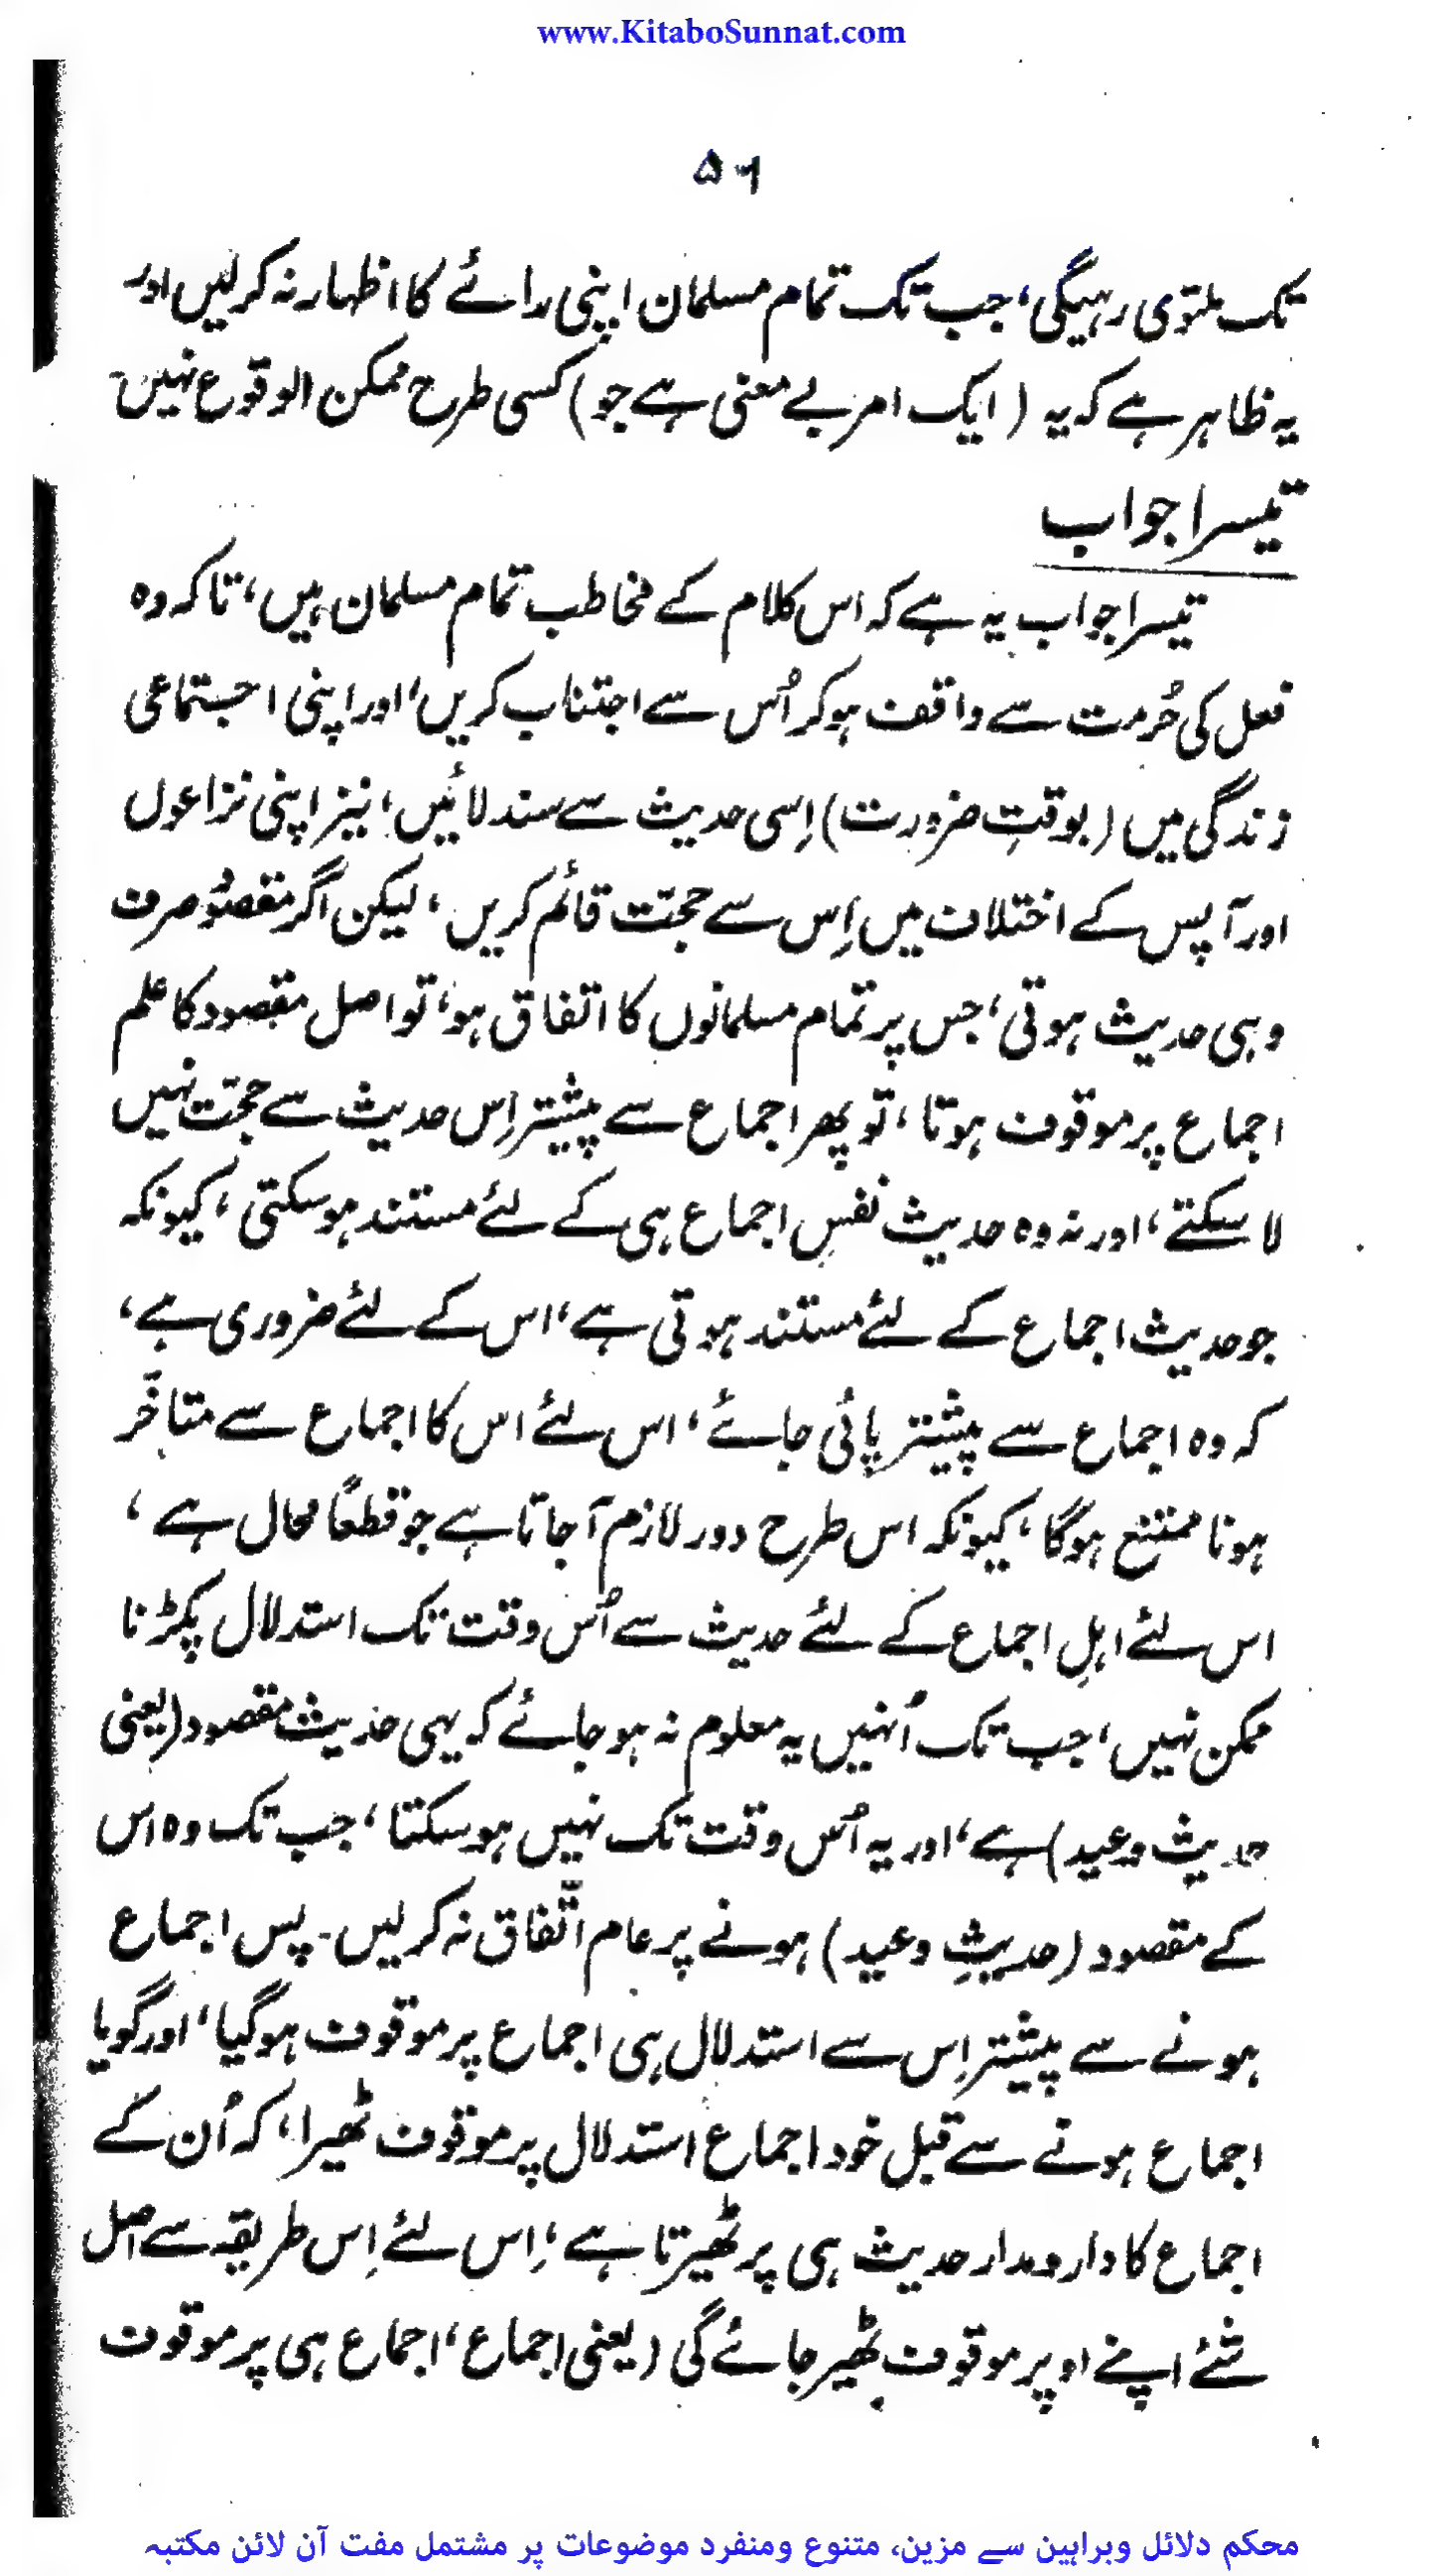 www.KitaboSunnat.com
۵۶
تک ملتوی رہیگی، جب تک تمام مسلمان اپنی رائے کا اظہار نہ کرلیں اور
یہ ظاہر ہے کہ یہ (ایک امر بے معنی ہے جو) کسی طرح ممکن الوقوع نہیں
تیسرا جواب
تیسرا جواب یہ ہے کہ اس کلام کے مخاطب تمام مسلمان ہیں، تاکہ وہ
فعل کی حُرمت سے واقف ہوکر اُس سے اجتناب کریں، اور اپنی اجتماعی
زندگی میں (بوقتِ ضرورت) اِسی حدیث سے سند لائیں، نیز اپنی نزاعوں
اور آپس کے اختلاف میں اِس سے حجّت قائم کریں، لیکن اگر مقصُود صرف
وہی حدیث ہوتی، جس پر تمام مسلمانوں کا اتفاق ہو، تو اصل مقصود کا علم
اجماع پر موقوف ہوتا، تو پھر اجماع سے پیشتر اِس حدیث سے حجّت نہیں
لا سکتے، اور نہ وہ حدیث نفسِ اجماع ہی کے لئے مستند ہوسکتی، کیونکہ
جو حدیث اجماع کے لئے مستند ہوتی ہے، اس کے لئے ضروری ہے،
کہ وہ اجماع سے پیشتر پائی جائے، اس لئے اس کا اجماع سے متاخّر
ہونا ممتنع ہوگا، کیونکہ اس طرح دور لازم آجاتا ہے جو قطعًا محال ہے،
اس لئے اہلِ اجماع کے لئے حدیث سے اُس وقت تک استدلال پکڑنا
ممکن نہیں، جب تک اُنہیں یہ معلوم نہ ہوجائے کہ یہی حدیث مقصود (یعنی
حدیث وعید) ہے، اور یہ اُس وقت تک نہیں ہوسکتا، جب تک وہ اس
کے مقصود (حدیثِ وعید) ہونے پر عام اتّفاق نہ کرلیں۔ پس اجماع
ہونے سے پیشتر اِس سے استدلال ہی اجماع پر موقوف ہوگیا، اور گویا
اجماع ہونے سے قبل خود اجماع استدلال پر موقوف ٹھیرا، کہ اُن کے
اجماع کا دارومدار حدیث ہی پر ٹھیرتا ہے، اِس لئے اِس طریقہ سے اصل
شئے اپنے اوپر موقوف ٹھیر جائے گی (یعنی اجماع، اجماع ہی پر موقوف
محکم دلائل وبراہین سے مزین، متنوع ومنفرد موضوعات پر مشتمل مفت آن لائن مکتبہ